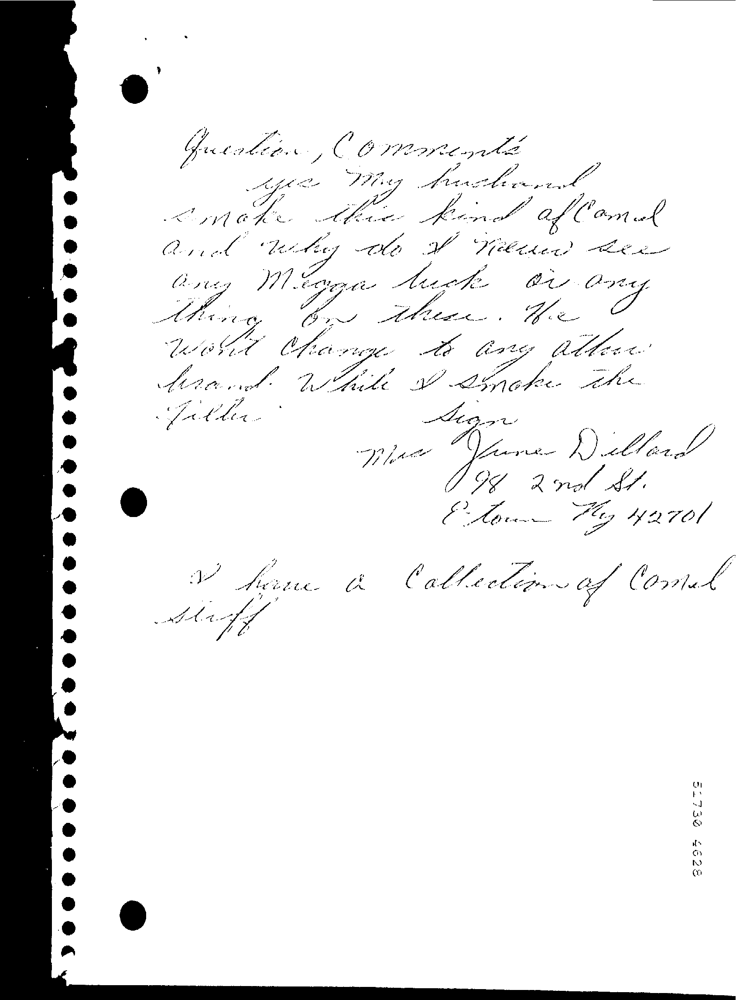 Question, Comment's
yes my husband
smoke this kind of Camel
and why do I never see
any Megga luck or any
thing on these. He
won't change to any other
brand. While I smoke the
Filter
sign
Mrs June Dillard
98 2nd St.
E-town Ky 42701
I have a Collection of Camel
stuff
51730 4628